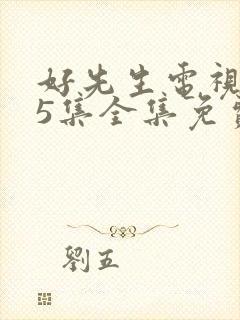 好先生電視
5集全集免
劉五